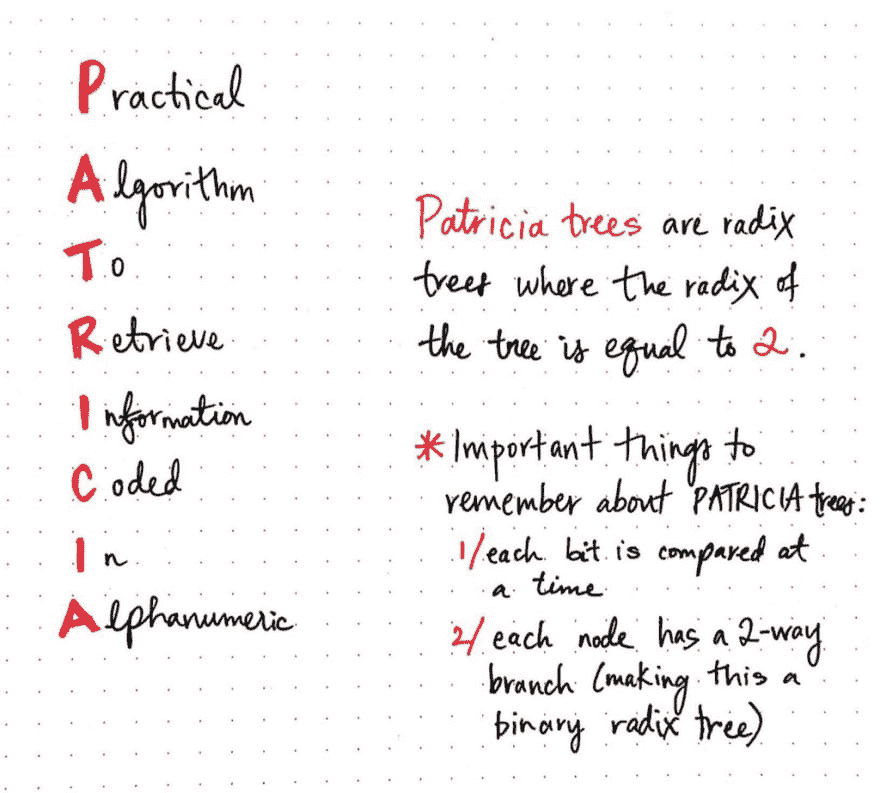 Practical
Algorithm
To
Retrieve
Information
Coded
In
Alphanumeric
Patricia trees are radix
trees where the radix of
the tree is equal to 2.
* Important things to
remember about PATRICIA trees:
1/ each bit is compared at
a time
2/ each node has a 2-way
branch (making this a
binary radix tree)